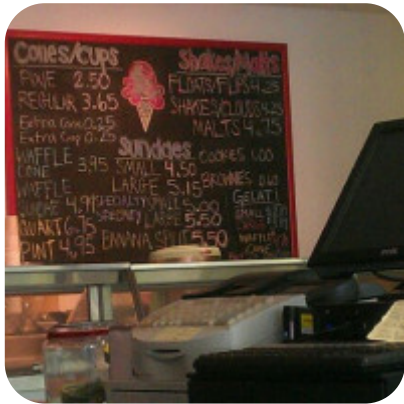 Cones/Cups
2.50
REGULAR 3.65
Extra Cone 0.25
Extra Cup 0.25
WAFFLE CONE 3.95
WAFFLE
QUART 6.15
PINT 4.95
Shakes/Malts
FLOATS/FLIPS 4.25
SHAKES/CLOUDS 4.25
MALTS 4.75
Sundaes
SMALL 4.50
LARGE 5.15
SPECIALTY SMALL 5.00
SPECIALTY LARGE 5.50
BANANA SPLIT 5.50
COOKIES 1.00
BROWNIES
GELATI
SMALL
WAFFLE
CONE